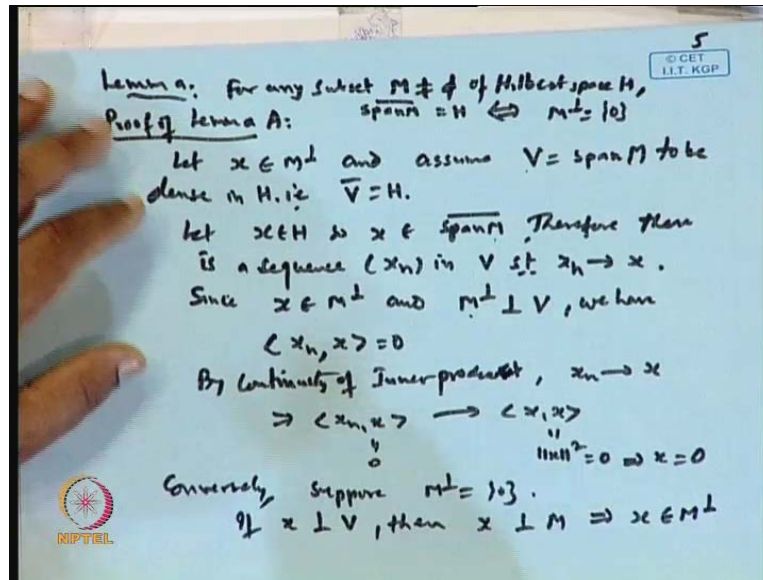 5
© CET
I.I.T. KGP
Lemma: For any subset M ≠ ϕ of Hilbert space H,
Proof of Lemma A: \overline{span M} = H ⇔ M⊥ = {0}
Let x ∈ M⊥ and assume V = span M to be
dense in H. i.e \overline{V} = H.
Let x ∈ H so x ∈ \overline{span M}. Therefore there
is a sequence (xn) in V st xn → x.
Since x ∈ M⊥ and M⊥ ⊥ V, we have
⟨xn, x⟩ = 0
By Continuity of Inner product, xn → x
⇒ ⟨xn, x⟩ → ⟨x, x⟩
" "
0 ||x||² = 0 ⇒ x = 0
Conversely, suppose M⊥ = {0}.
If x ⊥ V, then x ⊥ M ⇒ x ∈ M⊥
NPTEL